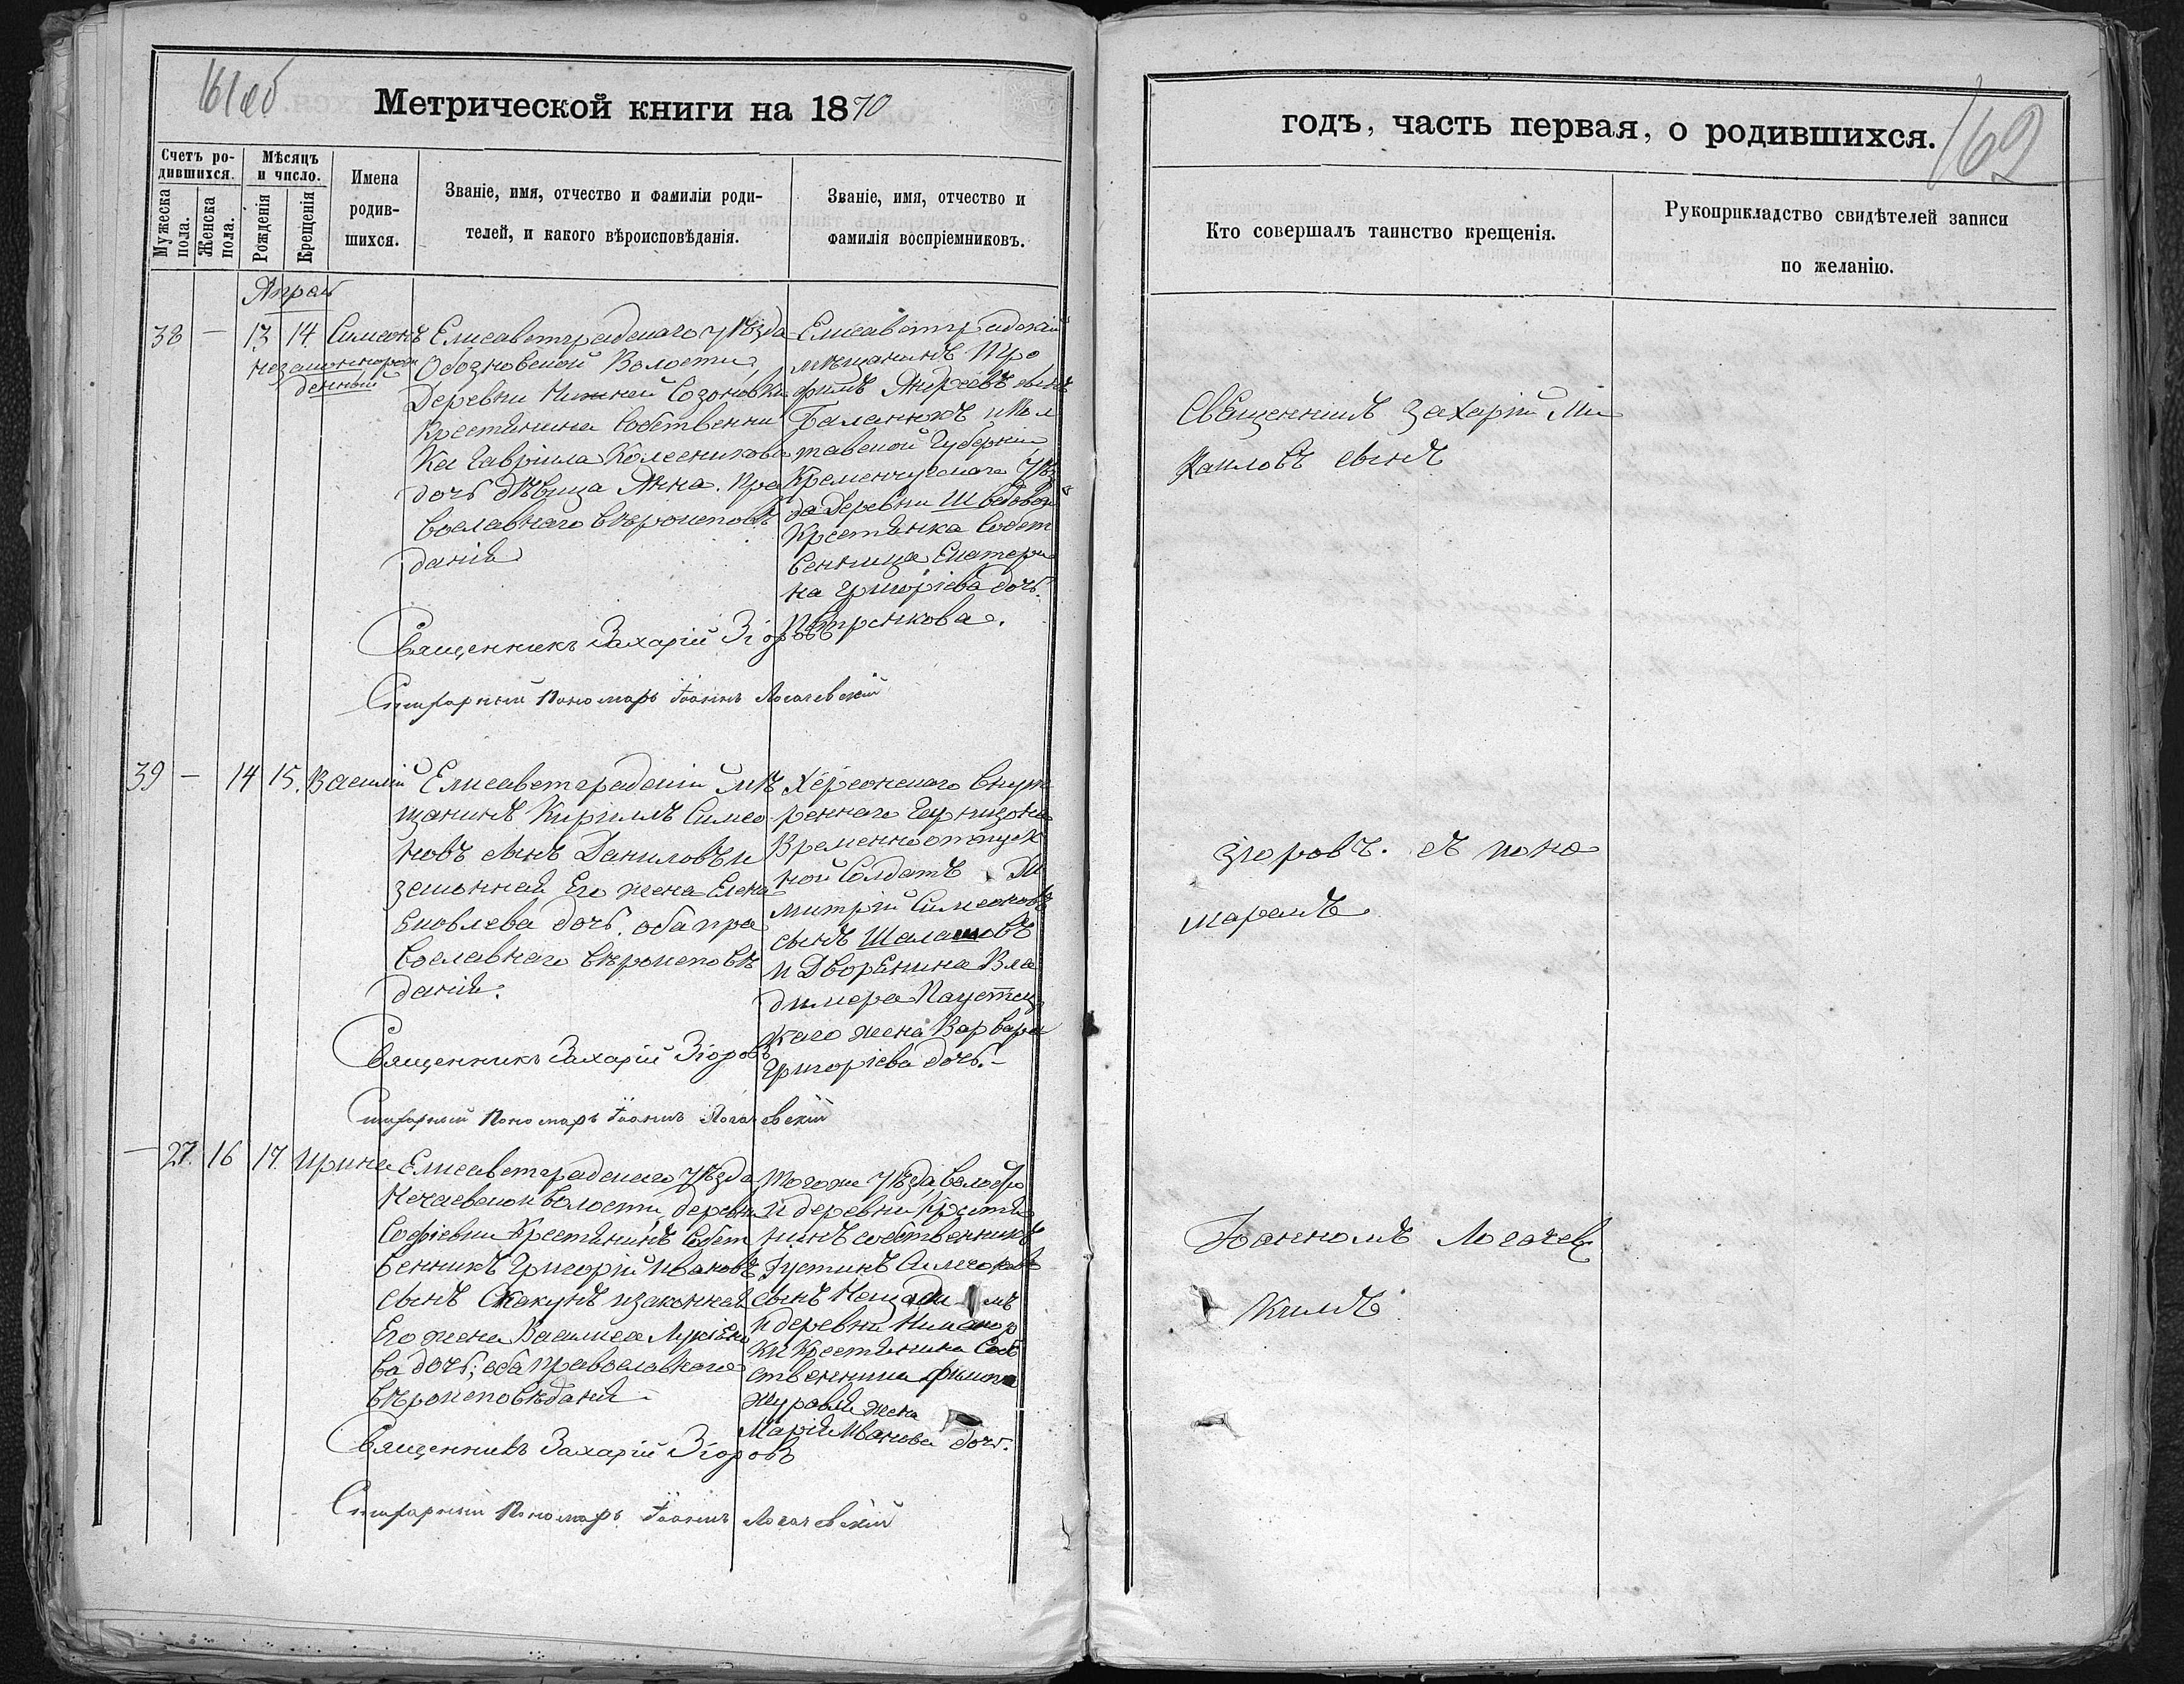 161 об
Метрической книги на 1870
Счетъ ро-
дившихся.
Мѣсяцъ
и число.
Мужеска
пола.
Женска
пола.
Рожденія
Крещенія
Имена
родив-
шихся.
Званіе, имя, отчество и фамиліи роди-
телей, и какого вѣроисповѣданія.
Званіе, имя, отчество и
фамилія воспріемниковъ.
Апрель
38 — 13 14 Симеонъ
незаконнорож
денный
Елисаветградскаго уѣзда
Обозновской Волости
Деревни Нижней Созоновки
Крестянина Собственни
ка Гавріила Колесникова
дочь дѣвица Анна. Пра
вославнаго вѣроисповѣ
данія
Елисаветградскій
мѣщанинъ Тро
фимъ Андреевъ сынъ
Баланюкъ и Пол
тавской Губерніи
Кременчугскаго Уѣз
да Деревни Шведовой
Крестянка Собст
венница Екатери
на Григоріева дочь
Петренкова.
Священникъ Захарій Згоровъ
Стихарный Пономарь Іоаннъ Логачевскій
39 — 14 15. Василій
Елисаветградскій мѣ
щанинъ Кириллъ Симео
новъ сынъ Даниловъ и
законная Его жена Елена
Яковлева дочь. оба пра
вославнаго вѣроисповѣ
данія.
Херсонскаго внут
ренняго Гарнизона
Временноотпуск
ной Солдатъ Ди
митрій Симеоновъ
сынъ Шалашовъ
и Дворянина Вла
димера Паустов
каго жена Варвара
Григоріева дочь. –
Священникъ Захарій Згоровъ
Стихарный Пономарь Іоаннъ Логачевскій
— 27. 16 17. Ирина
Елисаветградскаго уѣзда
Нечаевской волости, деревни
Софіевки Крестянинъ Собст
венникъ Григорій Ивановъ
сынъ Скакунъ и законная
Его жена Василиса Лукіяно
ва дочь; оба православнаго
вѣроисповѣданія –
Тогоже уѣзда, волости
и деревни Крестя
нинъ собственникъ
Іустинъ Симеоновъ
сынъ
и деревни
ки Крестянина Соб
ственника Филипа
Журавля жена
Марія Иванова дочь.
Священникъ Захарій Згоровъ
Стихарный Пономарь Іоаннъ Логачевскій
годъ, часть первая, о родившихся.
162
Кто совершалъ таинство крещенія.
Рукоприкладство свидѣтелей записи
по желанію.
Священникъ Захарій Ми
хаиловъ сынъ
Згоровъ. съ поно
маремъ
Іоанномъ Логачевс
кимъ